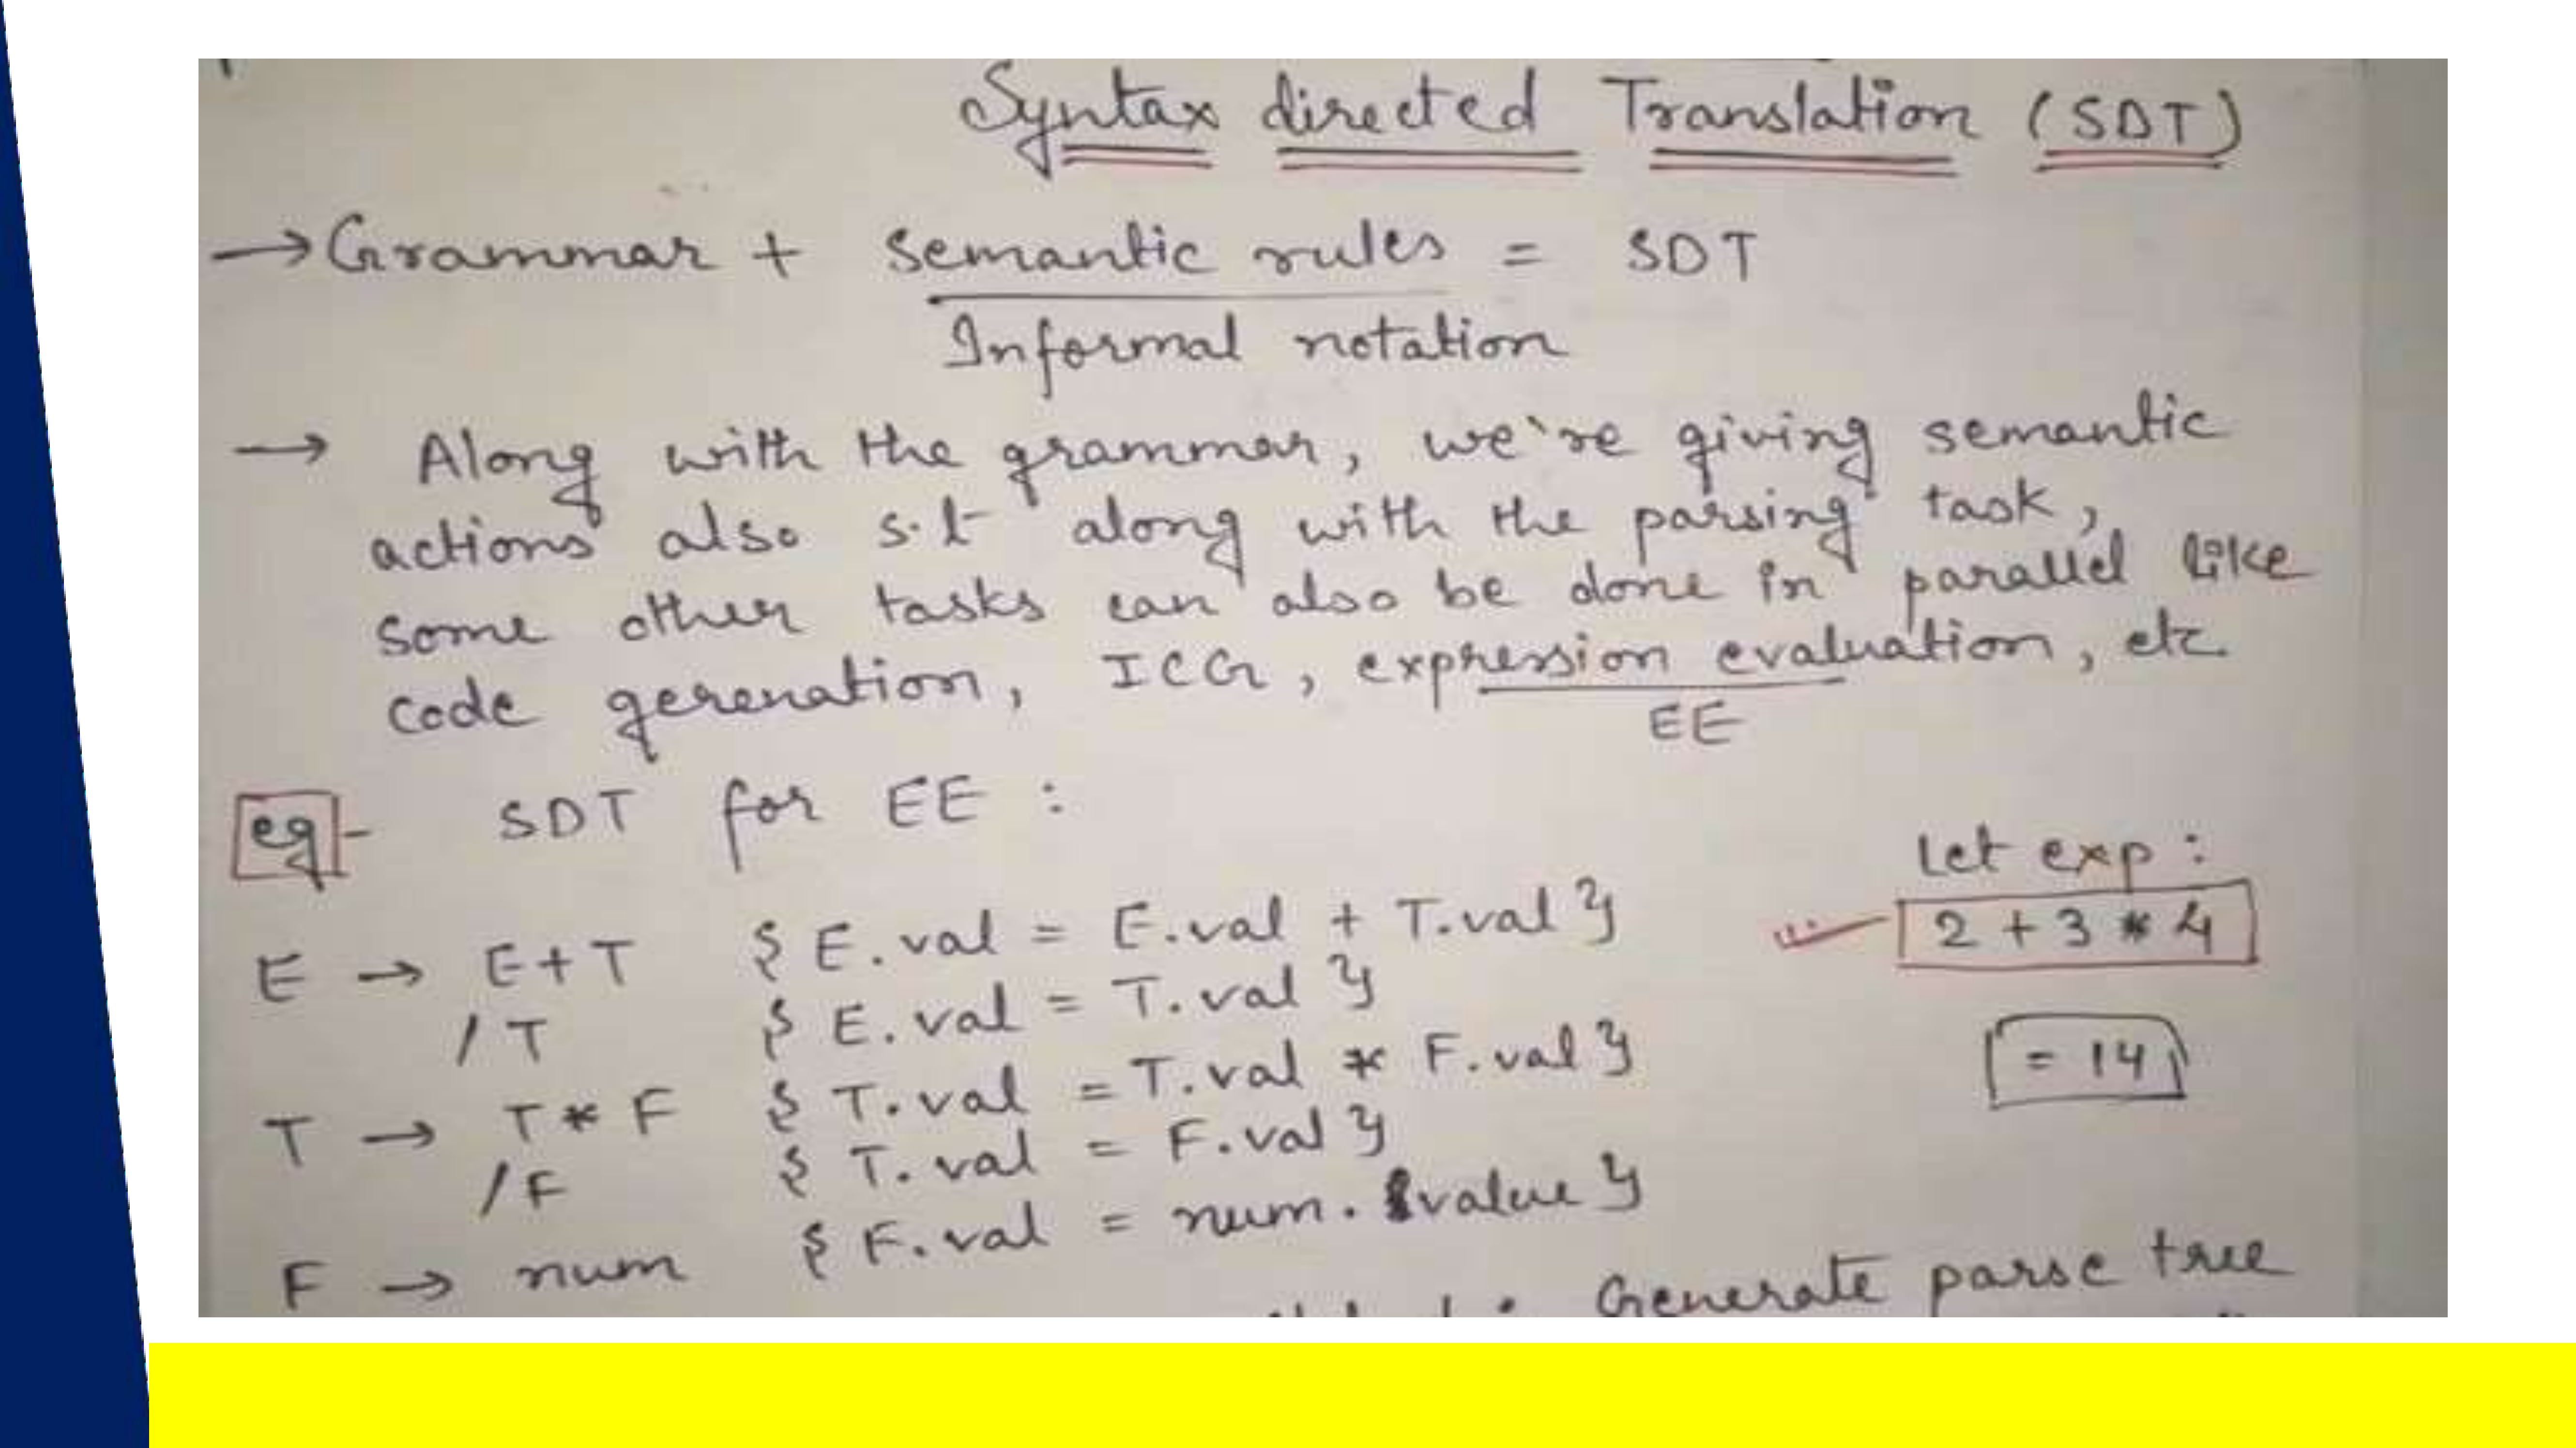 Syntax directed Translation (SDT)
→ Grammar + semantic rules = SDT
Informal notation
→ Along with the grammar, we're giving semantic
actions also s.t along with the parsing task,
some other tasks can also be done in parallel like
code gerenation, ICG, expression evaluation, etc
EE
eg - SDT for EE :
Let exp :
2 + 3 * 4
= 14
E → E + T { E.val = E.val + T.val }
/ T { E.val = T.val }
T → T * F { T.val = T.val * F.val }
/ F { T.val = F.val }
F → num { F.val = num. value }
Generate parse tree